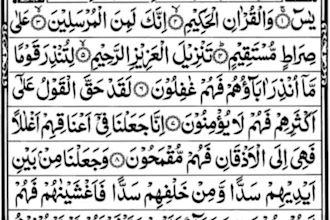 يٰسٓ ۝١ وَالْقُرْاٰنِ الْحَكِيْمِ ۝٢ اِنَّكَ لَمِنَ الْمُرْسَلِيْنَ ۝٣ عَلٰى
صِرَاطٍ مُّسْتَقِيْمٍ ۝٤ تَنْزِيْلَ الْعَزِيْزِ الرَّحِيْمِ ۝٥ لِتُنْذِرَ قَوْمًا
مَّآ اُنْذِرَ اٰبَآؤُهُمْ فَهُمْ غٰفِلُوْنَ ۝٦ لَقَدْ حَقَّ الْقَوْلُ عَلٰٓى
اَكْثَرِهِمْ فَهُمْ لَا يُؤْمِنُوْنَ ۝٧ اِنَّا جَعَلْنَا فِيْٓ اَعْنَاقِهِمْ اَغْلٰلًا
فَهِىَ اِلَى الْاَذْقَانِ فَهُمْ مُّقْمَحُوْنَ ۝٨ وَجَعَلْنَا مِنْۢ بَيْنِ
اَيْدِيْهِمْ سَدًّا وَّمِنْ خَلْفِهِمْ سَدًّا فَاَغْشَيْنٰهُمْ فَهُمْ